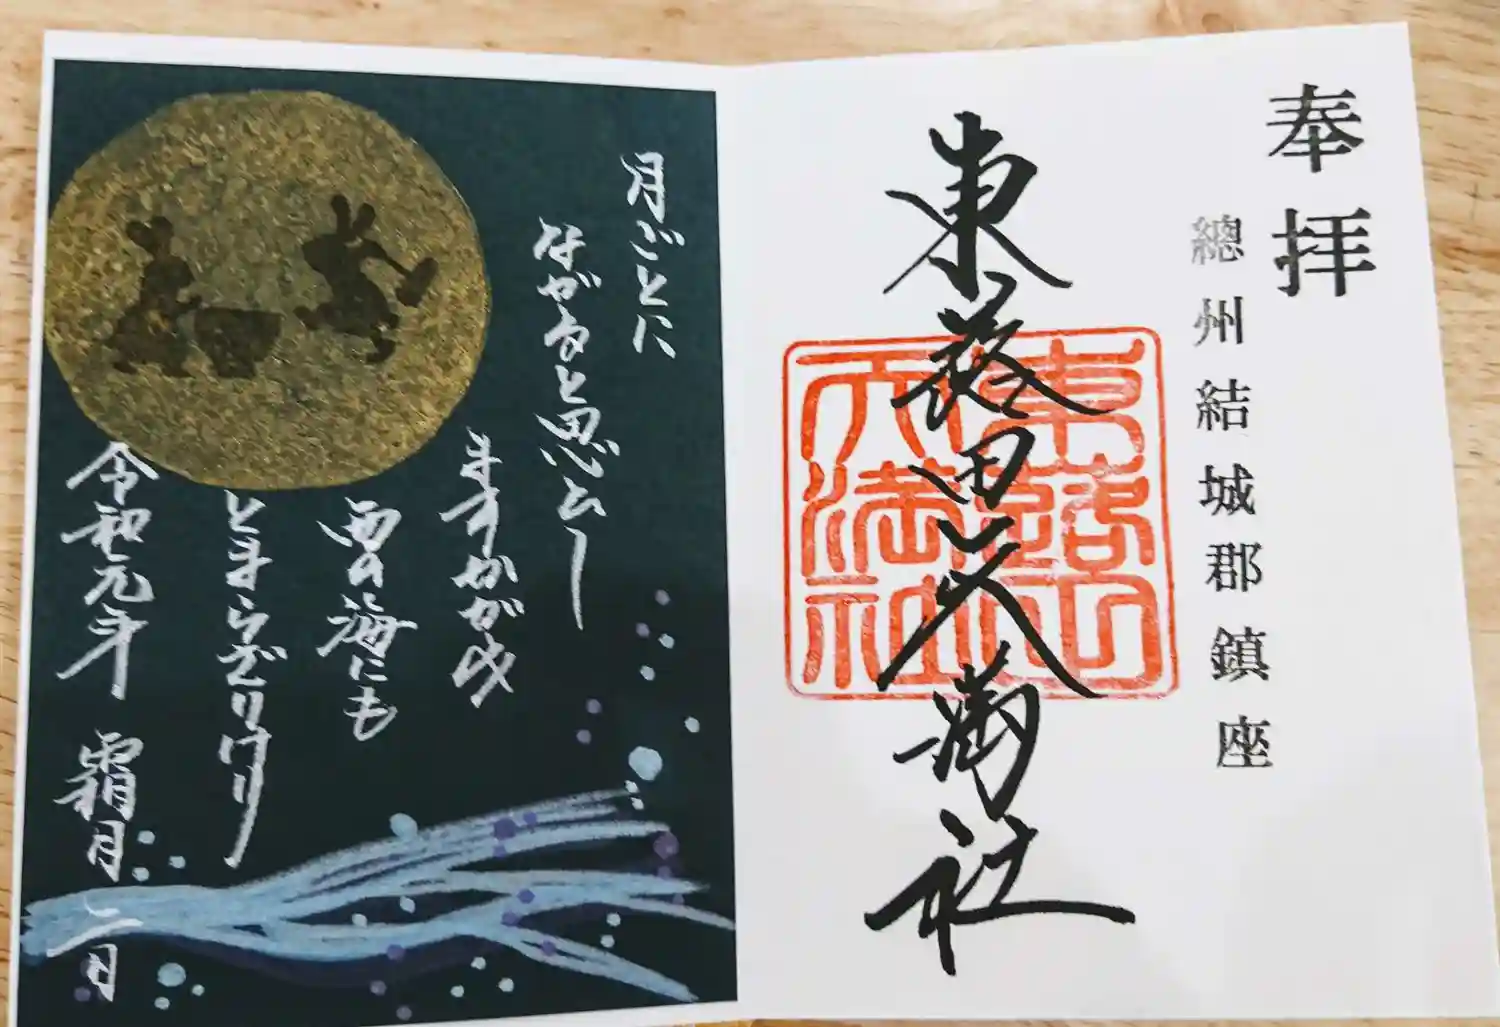 奉拝
總州結城郡鎮座
東蕗田天満社
東蕗田
天満社
月ごとに
ながると思ひし
ますかがみ
西の海にも
とまらざりけり
令和元年 霜月二日